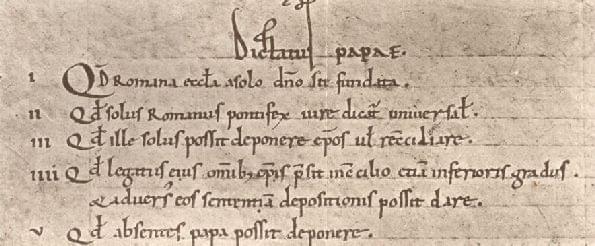 Dictatus papae.
I Qd Romana eccla a solo dno sit fundata.
II Qd solus Romanus pontifex iure dicat universal.
III Qd ille solus possit deponere epos ul reciliare.
IIII Qd legatus eius omib; epis psit in cilio etia inferioris gradus.
& adversus eos sententia depositionis possit dare.
V Qd absentes papa possit deponere.